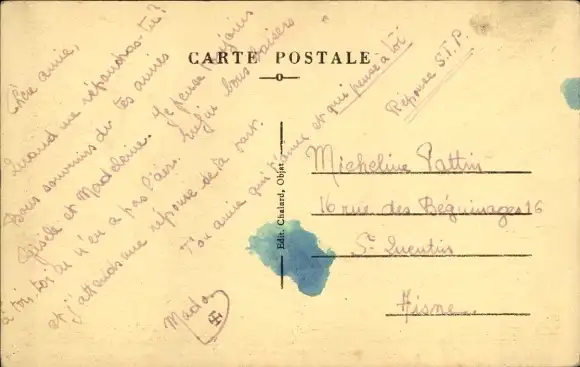 CARTE POSTALE
Chère amie,
Quand me répondras-tu?
Bons souvenirs de tes amies
Gisèle et Madeleine. Je pense toujours
à toi, toi tu n'en a pas l'air. Enfin bons baisers
et j'attends une réponse de ta part.
Ton amie qui t'aime et qui pense à toi
Mado
Réponse S.T.P.
Edit. Chalard, Objat
Micheline Pattin
16 rue des Béguinages 16
St Quentin
Aisne.